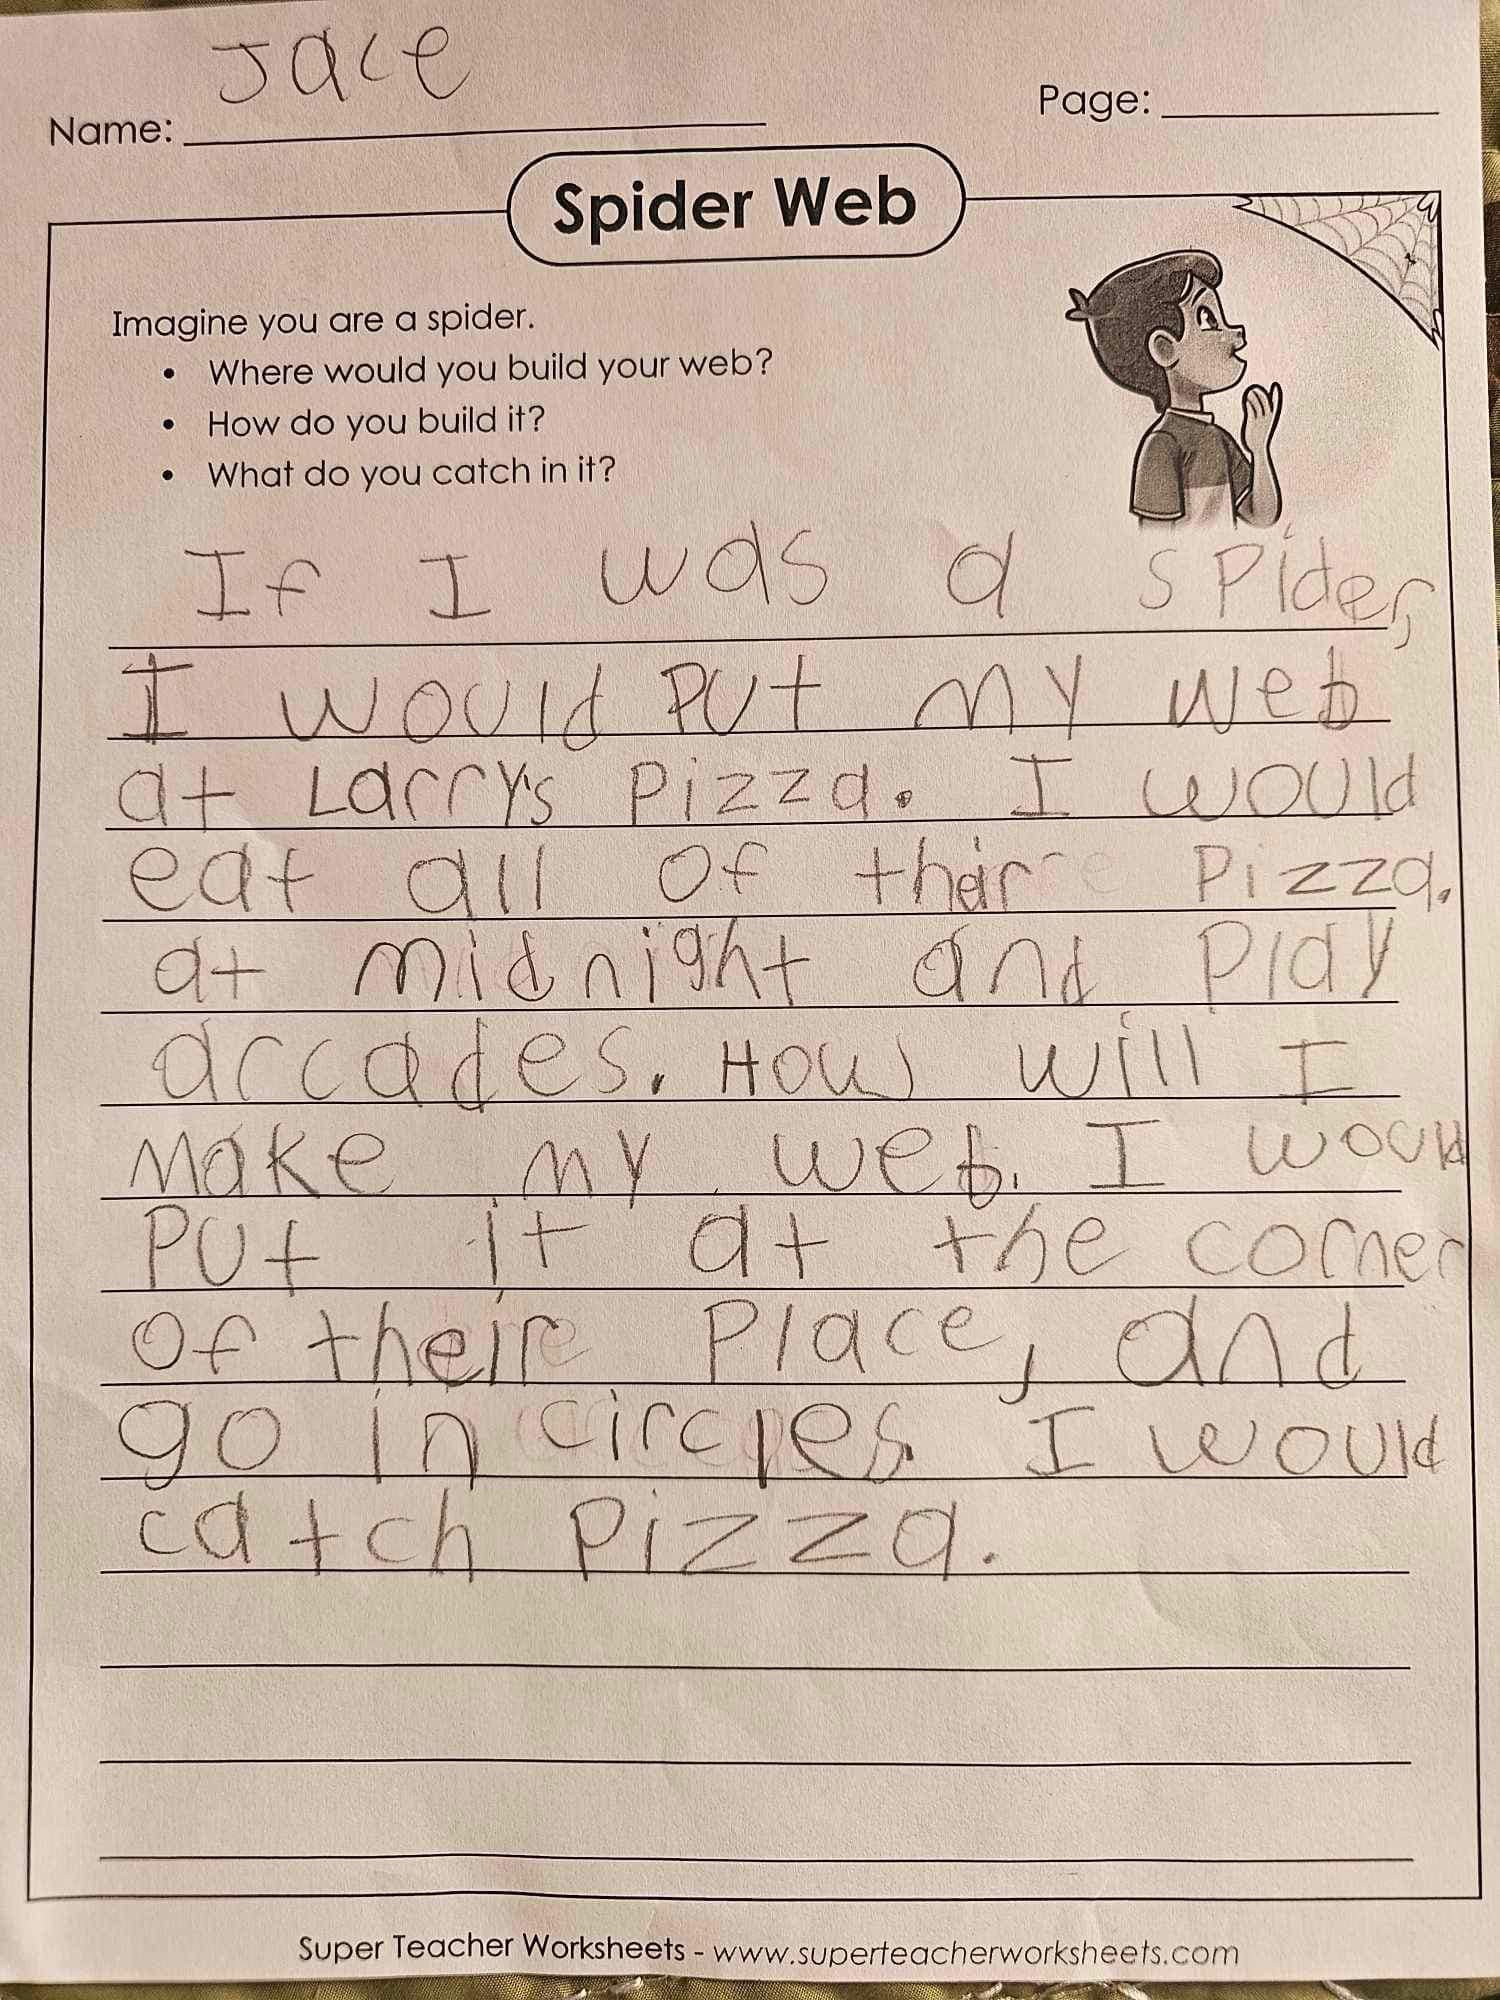 Jace
Name:
Page:
Spider Web
Imagine you are a spider.
• Where would you build your web?
• How do you build it?
• What do you catch in it?
If I was a spider,
I would put my web
at Larry's pizza. I would
eat all of their pizza.
at midnight and play
arcades. How will I
make my web. I would
put it at the corner
of their place, and
go in circles. I would
catch pizza.
Super Teacher Worksheets - www.superteacherworksheets.com